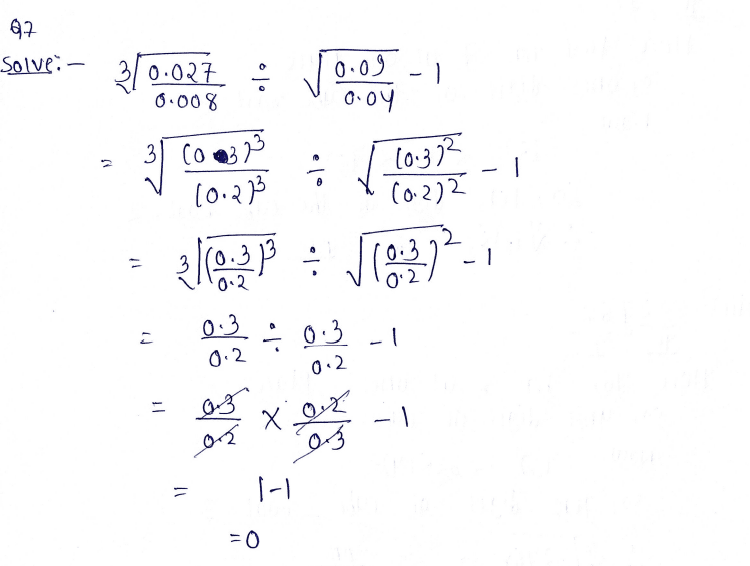 Q7
Solve:- ∛(0.027/0.008) ÷ √(0.09/0.04) - 1
= ∛((0.3)³/(0.2)³) ÷ √((0.3)²/(0.2)²) - 1
= ∛((0.3/0.2)³) ÷ √((0.3/0.2)²) - 1
= 0.3/0.2 ÷ 0.3/0.2 - 1
= 0.3/0.2 × 0.2/0.3 - 1
= 1-1
=0